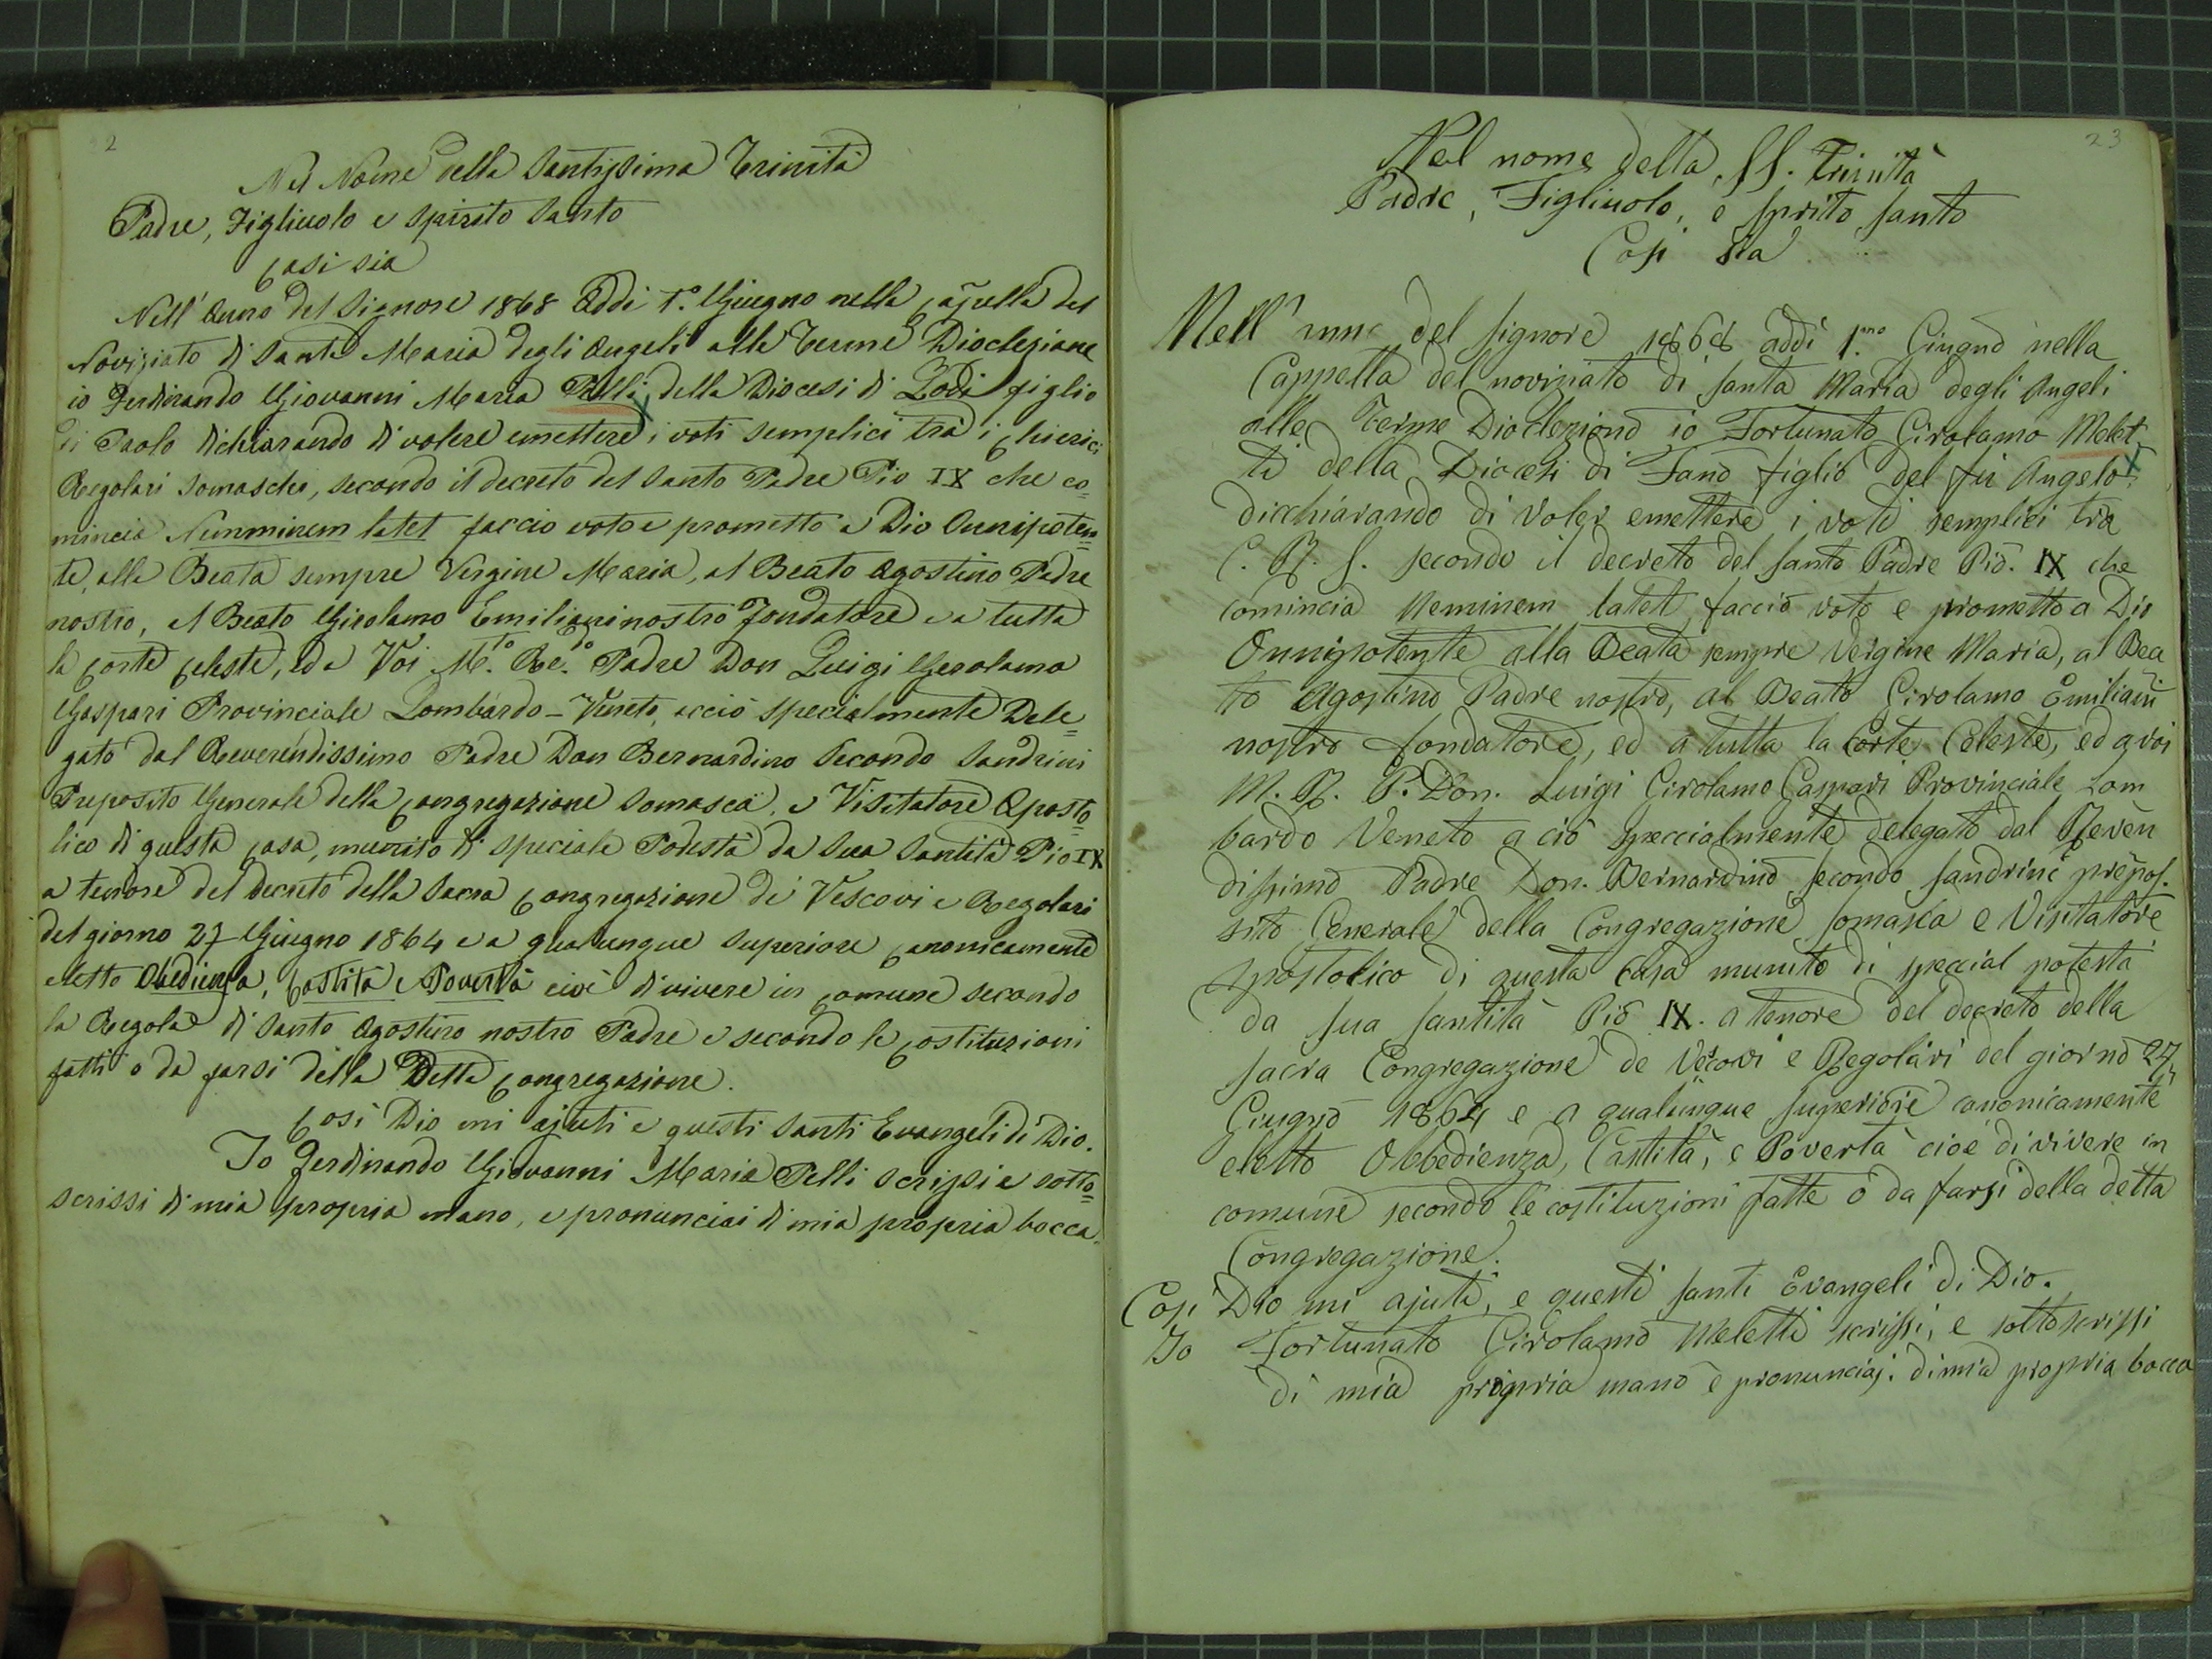 22
Nel Nome della Santissima Trinità
Padre, Figliuolo e Spirito Santo
Così sia
Nell'Anno del Signore 1868 Addì 1.° Giugno nella Cappella del
Noviziato di Santa Maria degli Angeli alle Terme Diocleziane
io Ferdinando Giovanni Maria Pelli della Diocesi di Lodi figlio
di Paolo dichiarando di volere emettere i voti semplici tra i Chierici
Regolari Somaschi, secondo il decreto del Santo Padre Pio IX che co=
mincia Nemminem latet faccio voto e prometto a Dio Onnipoten=
te, alla Beata sempre Vergine Maria, al Beato Agostino Padre
nostro, al Beato Girolamo Emiliani nostro Fondatore e a tutta
la Corte Celeste, ed a Voi M.to Re.do Padre Don Luigi Gerolamo
Gaspari Provinciale Lombardo-Veneto, acciò specialmente Dele=
gato dal Reverendissimo Padre Don Bernardino Secondo Sandrini
Preposito Generale della Congregazione Somasca, e Visitatore Aposto=
lico di questa Casa, munito di speciale Podestà da Sua Santità Pio IX
a tenore del Decreto della Sacra Congregazione de' Vescovi e Regolari
del giorno 27 Giugno 1864 e a qualunque Superiore Canonicamente
eletto Obedienza, Castità e Povertà cioè di vivere in Comune secondo
la Regola di Santo Agostino nostro Padre e secondo le Costituzioni
fatti o da farsi della Detta Congregazione.
Così Dio mi ajuti e questi Santi Evangeli di Dio.
Io Ferdinando Giovanni Maria Pelli scrissi e sotto=
scrissi di mia propria mano, e pronunciai di mia propria bocca.
23
Nel nome della SS. Trinità
Padre, Figliuolo, e Sprito Santo
Così Sia
Nell'anno del Signore 1868 addì 1.mo Giugno nella
Cappella del noviziato di Santa Maria degli Angeli
alle Terme Diocleziono io Fortunato Girolamo Melet
ti della Diocesi di Fano figlio del fù Angelo
dicchiarando di voler emettere i voti semplici tra
C. R. S. secondo il decreto del Santo Padre Pio. IX che
comincia Neminem latet faccio voto e prometto a Dio
Onnipotente alla Beata sempre Vergine Maria, al Bea
to Agostino Padre nostro, al Beato Girolamo Emiliani
nostro fondatore, ed a tutta la Corte Celeste, ed a voi
M. R. P. Don. Luigi Girolamo Gaspari Provinciale Lom
bardo Veneto a ciò speccialmente delegato dal Reveren
dissimo Padre Don. Bernardino secondo Sandrini prepos.
sito Generale della Congregazione Somasca e Visitatore
Apostolico di questa Casa munito di speccial potestà
da sua santità Pio IX. a tenore del decreto della
sacra Congregazione de Vecovi e Regolari del giorno 27
Giugno 1864 e a qualunque superiore canonicamente
eletto Obbedienza, Castità, e Povertà cioè di vivere in
comune secondo le costituzioni fatte o da farsi della detta
Congregazione.
Così Dio mi ajuti, e questi santi Evangeli di Dio.
Io Fortunato Girolamo Meletti scrissi, e sottoscrissi
di mia propria mano e pronunciaj. di mia propria bocca